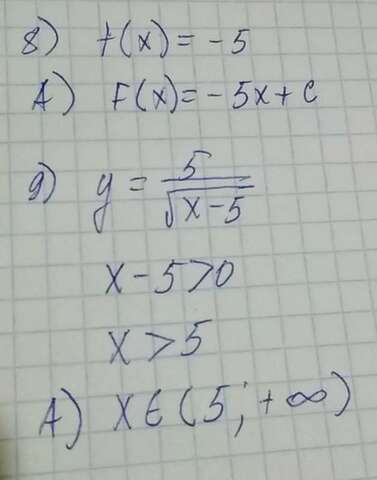 8) f(x) = -5
A) F(x) = -5x + C
9) y = 5/√(x-5)
x - 5 > 0
x > 5
A) x ∈ (5; +∞)